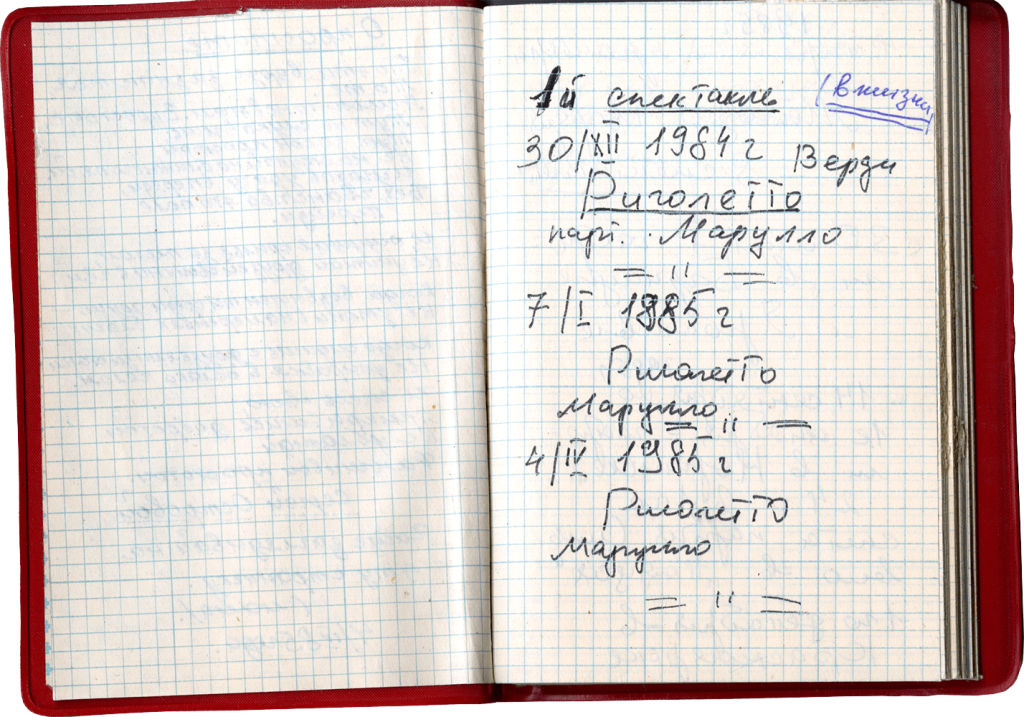 1й спектакль (в жизни)
30/XII 1984 г Верди
Риголетто
парт. Марулло
= " =
7/I 1985 г
Риголетто
Марулло
= " =
4/IV 1985 г
Риголетто
Марулло
= " =